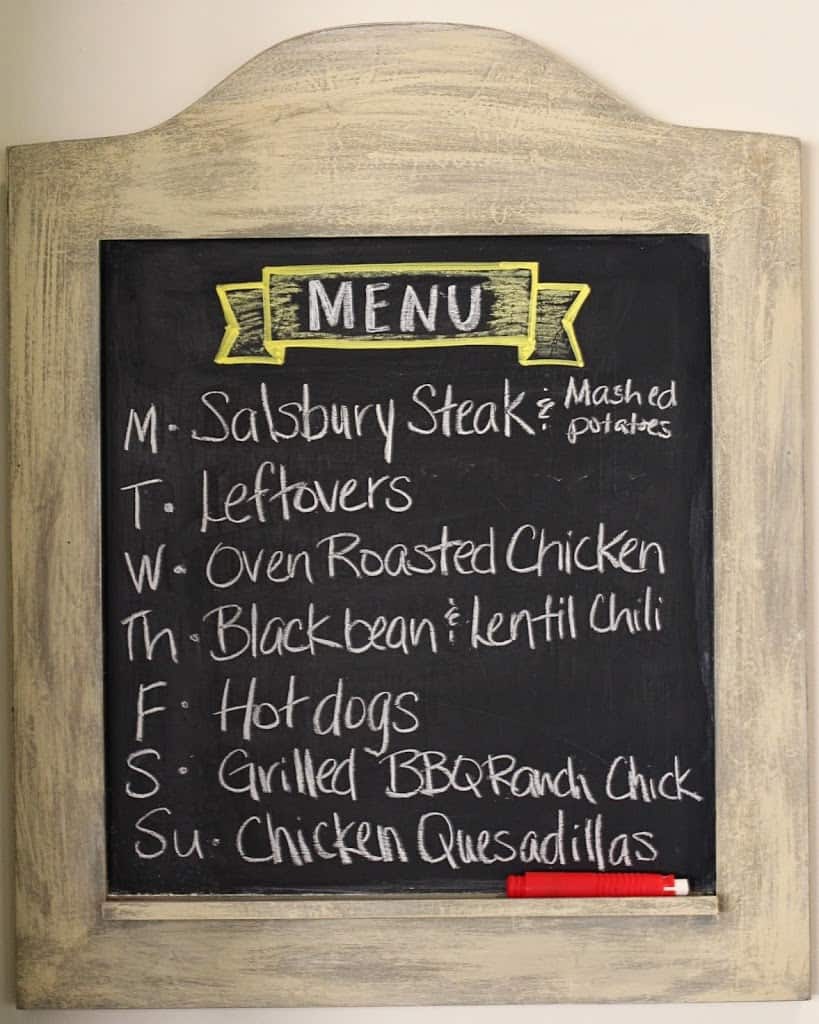 MENU
M· Salsbury Steak & Mashed potatoes
T· Leftovers
W· Oven Roasted Chicken
Th· Blackbean & Lentil Chili
F· Hotdogs
S· Grilled BBQ Ranch Chick
Su· Chicken Quesadillas